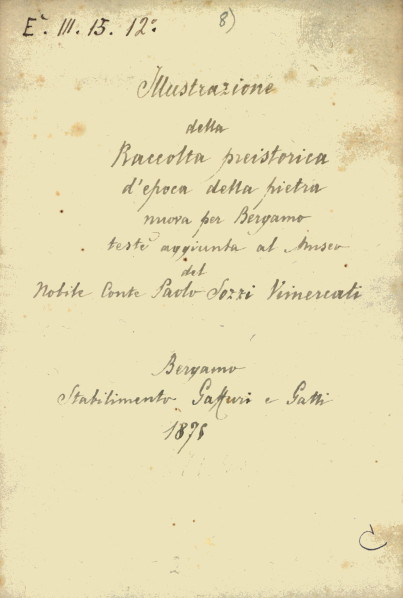 E. III. 15. 12.
8)
Illustrazione
della
Raccolta preistorica
d'epoca della pietra
nuova per Bergamo
testè aggiunta al Museo
del
Nobile Conte Paolo Sozzi Vimercati
Bergamo
Stabilimento Gaffuri e Gatti
1876
C